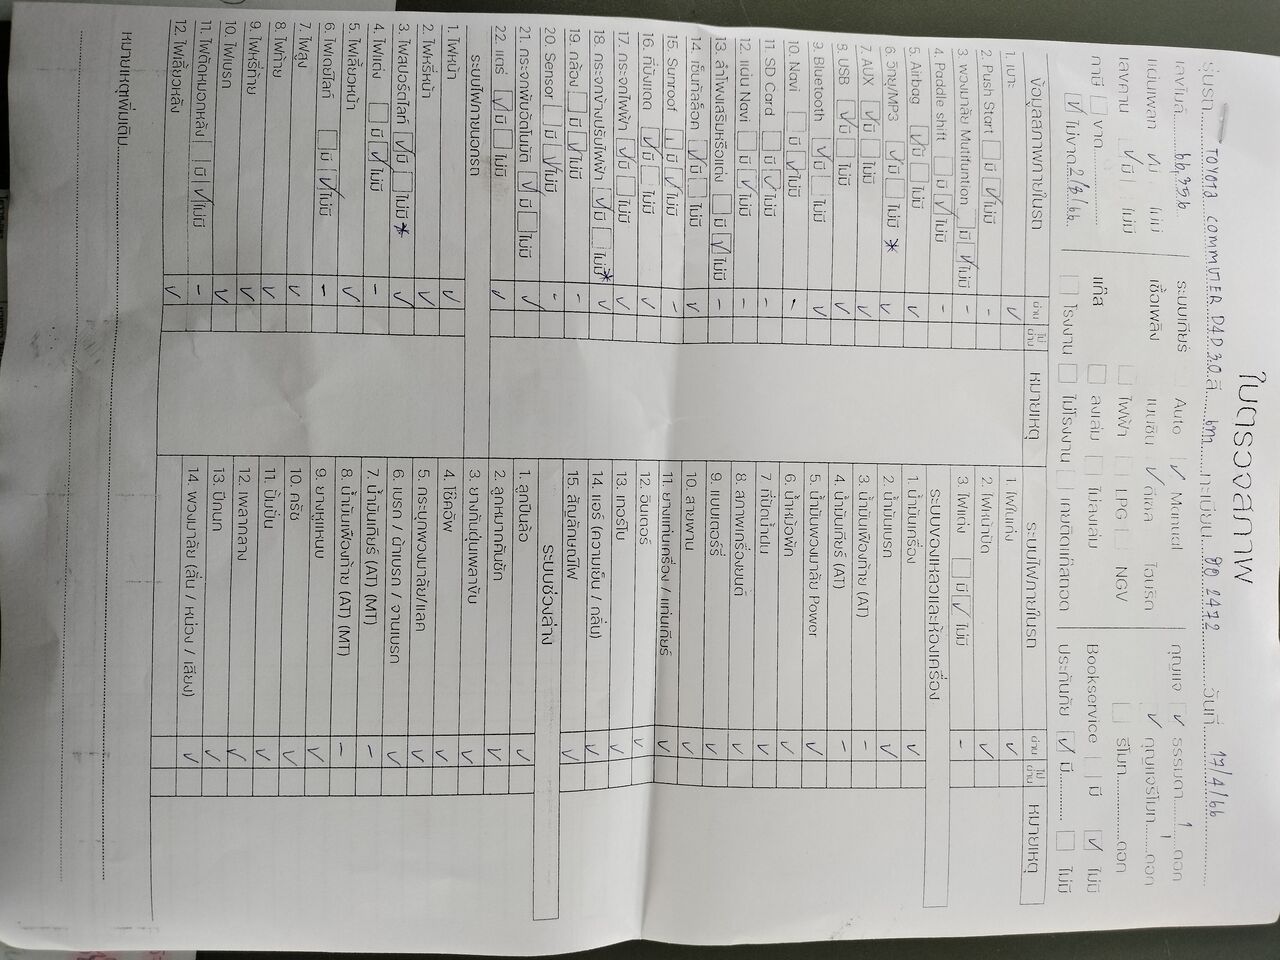 ใบตรวจสภาพ
รุ่นรถ TOYOTA COMMUTER D4D 3.0 สี เทา ทะเบียน 2472 วันที่ 17/4/66
เลขไมล์ ระบบเกียร์ Auto ✓ Manual กุญแจ ✓ ธรรมดา 1 ดอก
แผ่นเพลท มี ไม่มี เชื้อเพลิง เบนซิน ✓ ดีเซล ไฮบริด ✓ กุญแจรีโมท 1 ดอก
เล่มคาน ✓ มี ไม่มี ไฟฟ้า LPG NGV รีโมท ดอก
ภาษี ขาด แก๊ส ลงเล่ม ไม่ลงเล่ม Bookservice มี ✓ ไม่มี
✓ ไม่ขาด 2/8/66 โรงงาน ไม่โรงงาน เคยติดแก๊สถอด ประกันภัย ✓ มี ไม่มี
ข้อมูลสภาพภายในรถ ผ่าน ไม่ผ่าน หมายเหตุ
1. เบาะ ✓
2. Push Start มี ✓ ไม่มี -
3. พวงมาลัย Mutifuntion มี ✓ ไม่มี -
4. Paddle shift มี ✓ ไม่มี -
5. Airbag ✓ มี ไม่มี ✓
6. วิทยุ/MP3 ✓ มี ไม่มี * ✓
7. AUX ✓ มี ไม่มี ✓
8. USB ✓ มี ไม่มี ✓
9. Bluetooth ✓ มี ไม่มี ✓
10. Navi มี ✓ ไม่มี -
11. SD Card มี ✓ ไม่มี -
12. แผ่น Navi มี ✓ ไม่มี -
13. ลำโพงเสริมหรือแต่ง มี ✓ ไม่มี -
14. เซ็นทัลล็อค ✓ มี ไม่มี ✓
15. Sunroof มี ✓ ไม่มี -
16. ที่บังแดด ✓ มี ไม่มี ✓
17. กระจกไฟฟ้า ✓ มี ไม่มี ✓
18. กระจกข้างปรับไฟฟ้า ✓ มี ไม่มี * ✓
19. กล้อง มี ✓ ไม่มี -
20. Sensor มี ✓ ไม่มี -
21. กระจกพับอัตโนมัติ ✓ มี ไม่มี ✓
22. แตร ✓ มี ไม่มี ✓
ระบบไฟภายนอกรถ
1. ไฟหน้า ✓
2. ไฟหรี่หน้า ✓
3. ไฟสปอร์ตไลท์ ✓ มี ไม่มี * ✓
4. ไฟแต่ง มี ✓ ไม่มี -
5. ไฟเลี้ยวหน้า ✓
6. ไฟเดย์ไลท์ มี ✓ ไม่มี -
7. ไฟสูง ✓
8. ไฟท้าย ✓
9. ไฟหรี่ท้าย ✓
10. ไฟเบรก ✓
11. ไฟตัดหมอกหลัง มี ✓ ไม่มี -
12. ไฟเลี้ยวหลัง ✓
ระบบไฟภายในรถ ผ่าน ไม่ผ่าน หมายเหตุ
1. ไฟในเก๋ง ✓
2. ไฟหน้าปัด ✓
3. ไฟแต่ง มี ✓ ไม่มี -
ระบบของเหลวและห้องเครื่อง
1. น้ำมันเครื่อง ✓
2. น้ำมันเบรก ✓
3. น้ำมันเฟืองท้าย (AT) -
4. น้ำมันเกียร์ (AT) -
5. น้ำมันพวงมาลัย Power ✓
6. น้ำหม้อพัก ✓
7. ที่ปัดน้ำฝน ✓
8. สภาพเครื่องยนต์ ✓
9. แบตเตอร์รี่ ✓
10. สายพาน ✓
11. ยางแท่นเครื่อง / แท่นเกียร์ ✓
12. อินเตอร์ ✓
13. เทอร์โบ ✓
14. แอร์ (ความเย็น / กลิ่น) ✓
15. สัญลักษณ์ไฟ ✓
ระบบช่วงล่าง
1. ลูกปืนล้อ ✓
2. ลูกหมากคันชัก ✓
3. ยางกันฝุ่นเพลาขับ ✓
4. โช๊คอัพ ✓
5. กระปุกพวงมาลัย/แลค ✓
6. เบรก / ผ้าเบรก / จานเบรก ✓
7. น้ำมันเกียร์ (AT) (MT) -
8. น้ำมันเฟืองท้าย (AT) (MT) -
9. ยางหูแหนบ ✓
10. ครัช ✓
11. ปั๊มปั่น ✓
12. เพลากลาง ✓
13. ปีกนก ✓
14. พวงมาลัย (ลื่น / หน่วง / เสียง) ✓
หมายเหตุเพิ่มเติม